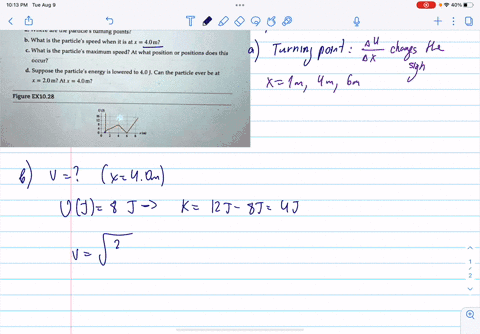 10:13 PM Tue Aug 9
40%
a. Where are the particle's turning points?
b. What is the particle's speed when it is at x = 4.0 m?
c. What is the particle's maximum speed? At what position or positions does this
occur?
d. Suppose the particle's energy is lowered to 4.0 J. Can the particle ever be at
x = 2.0 m? At x = 4.0 m?
Figure EX10.28
a) Turning point: ΔU/Δx changes the
sign
x = 1m, 4m, 6m
b) v = ? (x = 4.0m)
U(J) = 8 J → K = 12J - 8J = 4J
v = √2
1
2